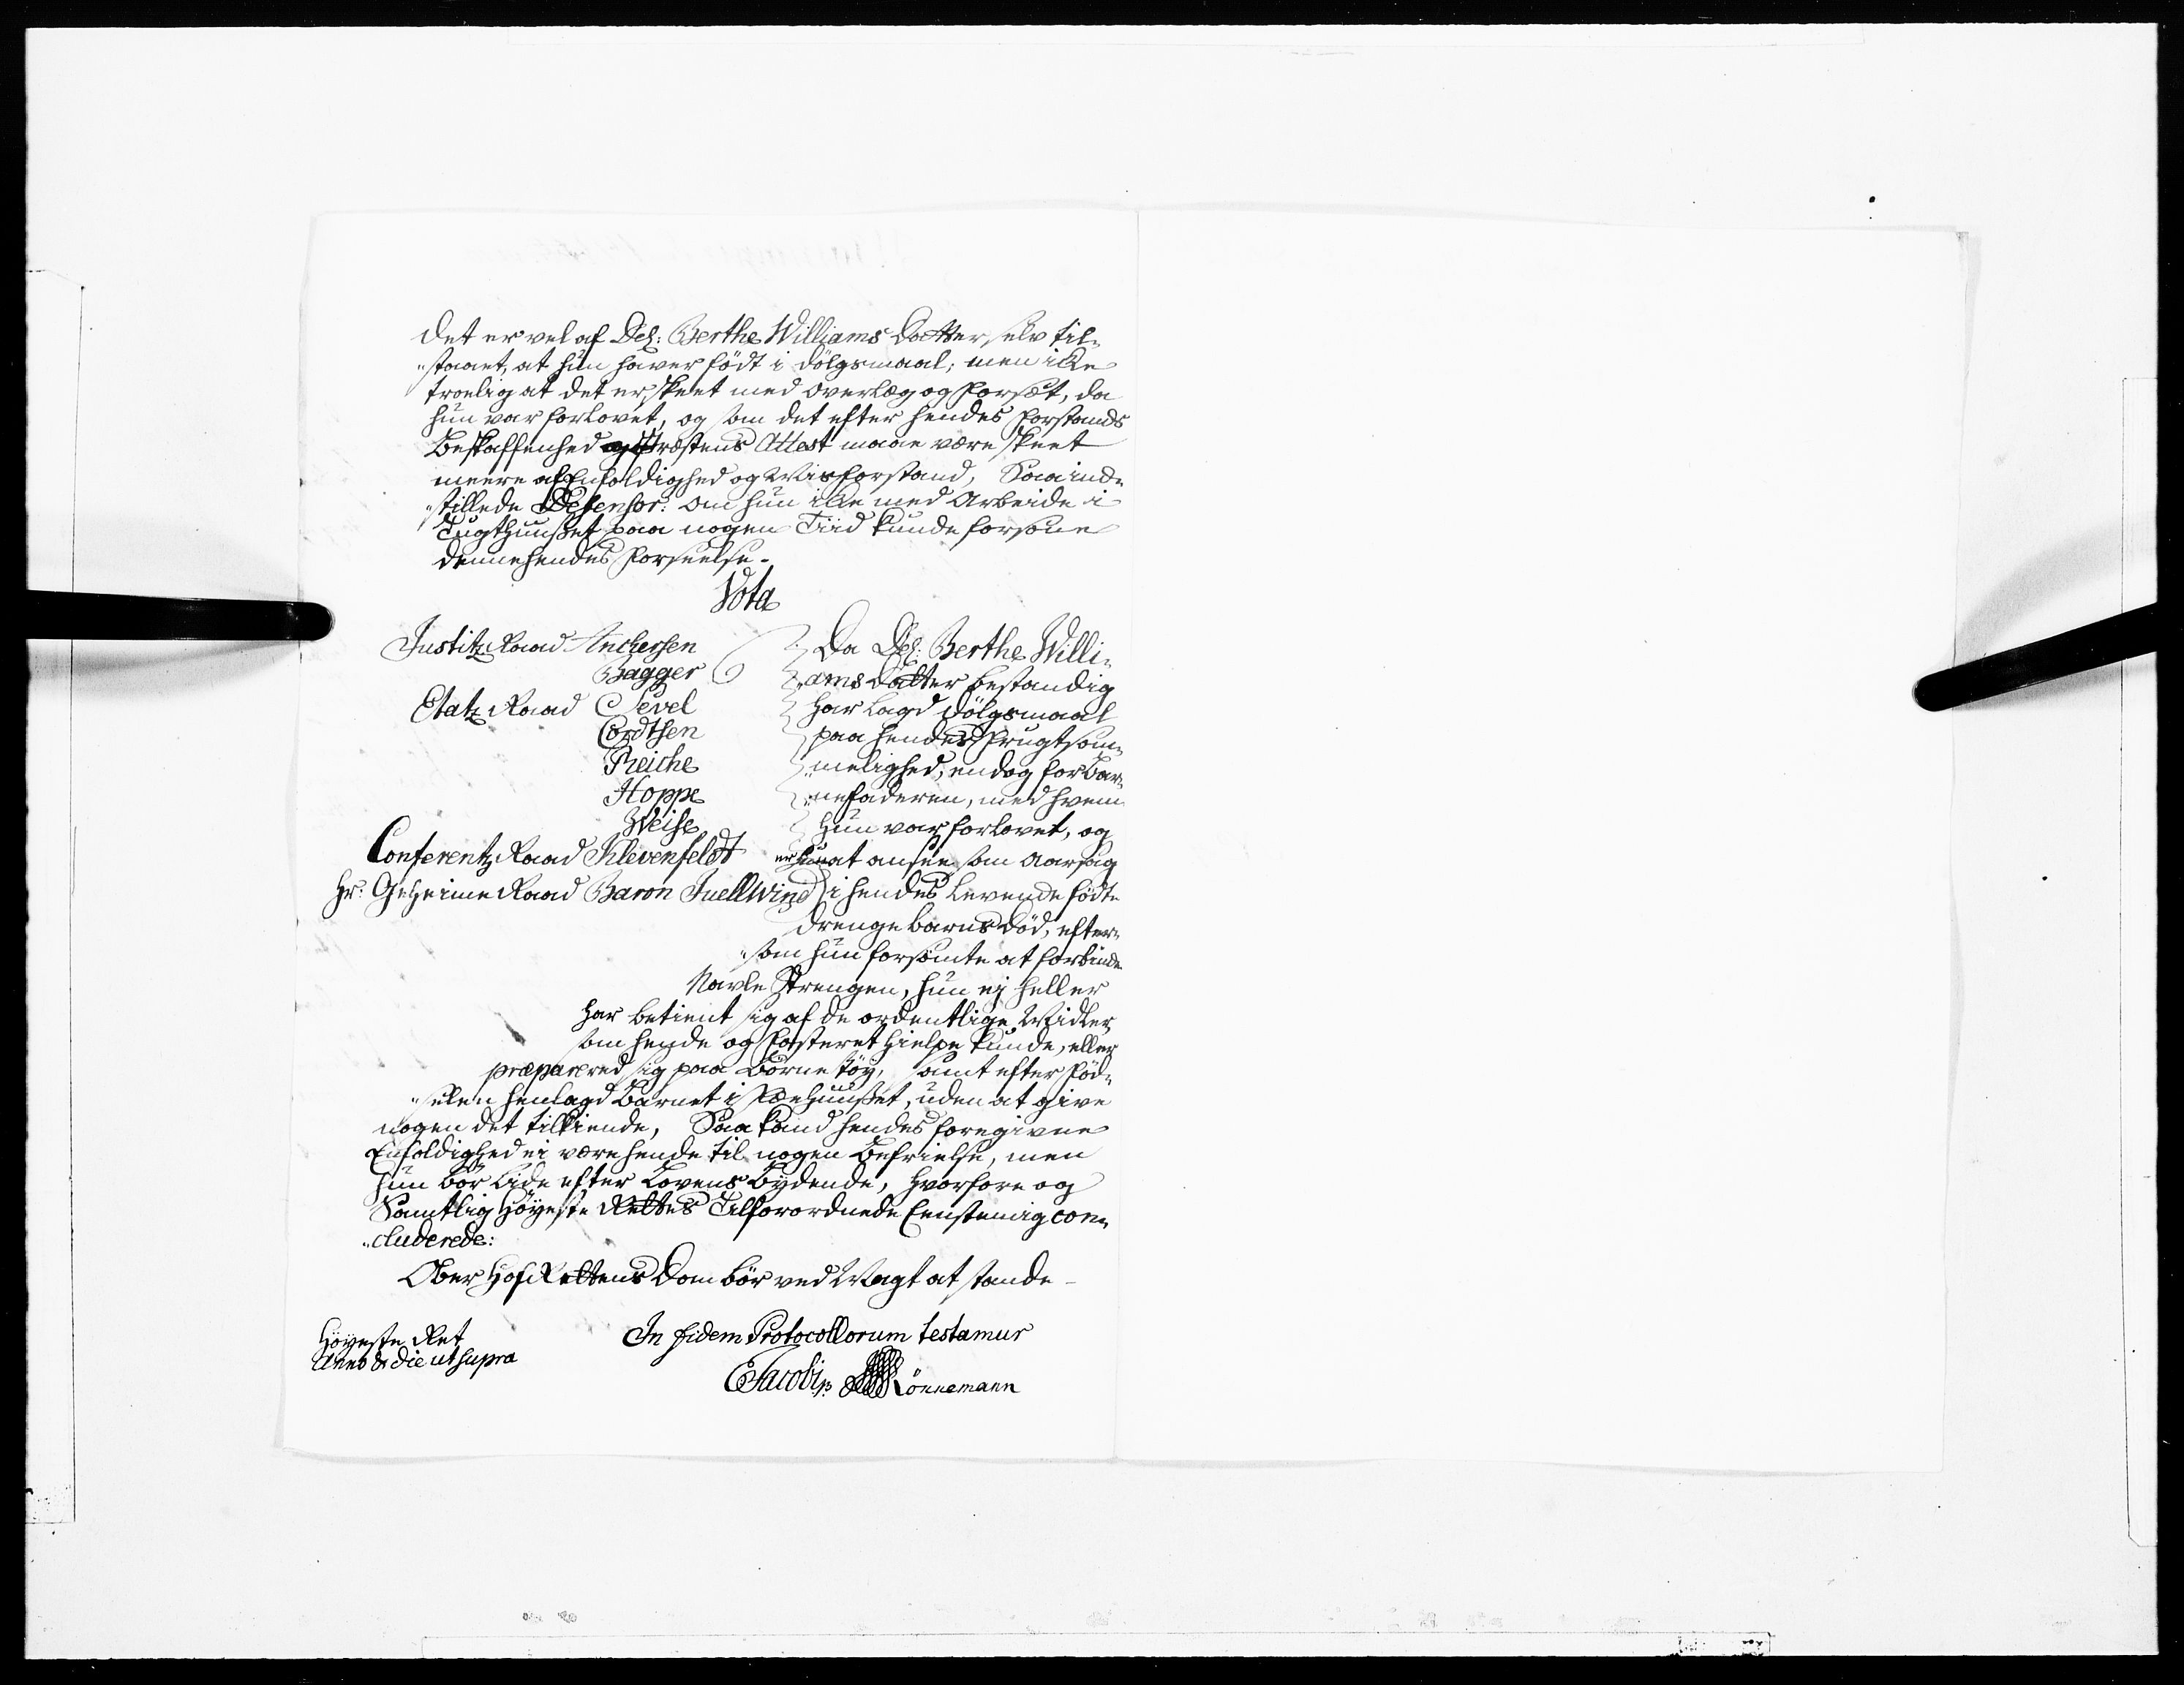 det er vel af Del: Berthe Williams Datter selv til„
„staaet, at hun haver födt i dölgsmaal; men ikke
troelig at det er skeet med overlæg og Forsæt, da
hun var forlovet, og som det efter hendes Forstands
Beskaffenhed og Præstens Attest maae være skeet
meere af Enfoldighed og Misforstand, Saa ind„
„stillede Defensor: om hun ikke med Arbeide i
Tugthuuset paa nogen Tiid kunde forsone
denne hendes Forseelse.
Vota
Justitz Raad Anchersen
Bagger
Etatz Raad Sevel
Cordtsen
Reiche
Hoppe
Weise
Conferentz Raad Klevenfeldt
Hr: Geheime Raad Baron Juell Wind
Da Del: Berthe Willi„
„ams Datter bestandig
har lagd Dölgsmaal
paa hendes Frugtsom„
„melighed, endog for Bar„
„nefaderen, med hvem
hun var forlovet, og
er hun at ansee som Aarsag
i hendes levende födte
Drenge Barns Död, efter„
„som hun forsömte at forbinde
Navle Strengen, hun ej heller
har betient sig af de ordentlige Midler
som hende og Fosteret hielpe kunde, eller
præparered sig paa Börne töy, samt efter Föd„
„selen henlagd Barnet i Fæehuuset, uden at give
nogen det tilkiende, Saa kand hendes foregivne
Enfoldighed ei være hende til nogen Befrielse, men
hun bör lide efter Lovens Bydende, hvorfore og
Samtlig Höyeste Rettes Tilforordnede Eenstemig con„
„cluderede:
Ober Hof Rettens Dom bör ved Magt at stande
Höyeste Ret
Anno & die ut supra
In fidem Protocollorum testamur
EJacobi Rönnemann